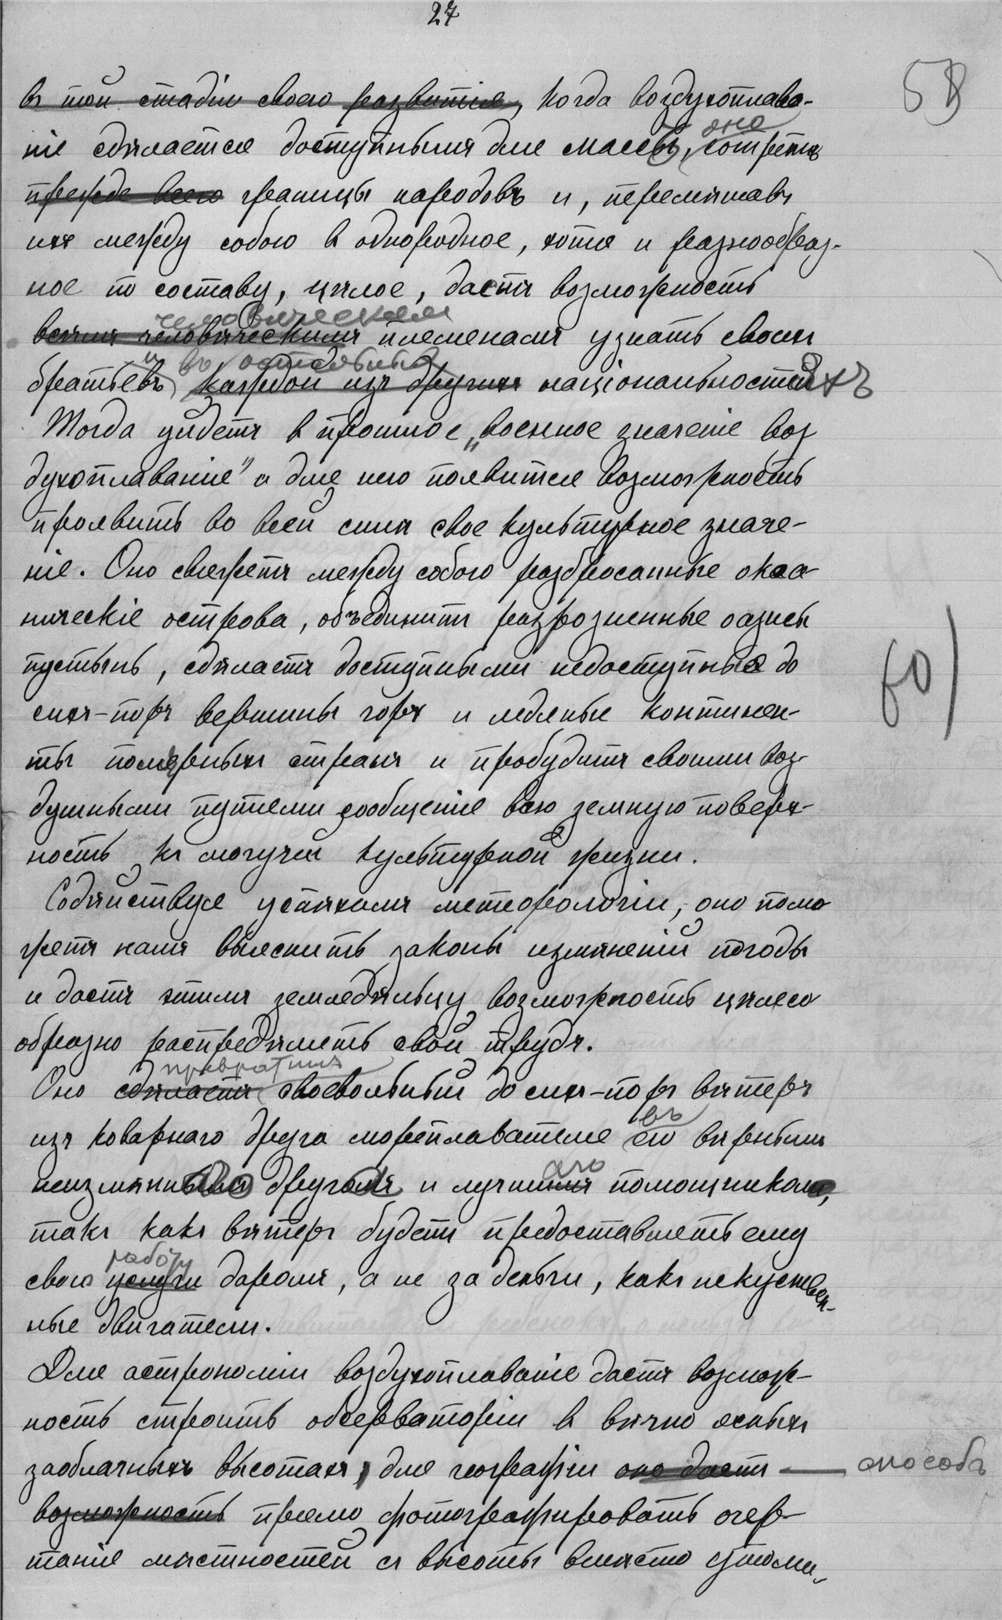 27
58
в той стадіи своего развитія, когда воздухоплава-
ніе сдѣлается доступнымъ для массъ, оно сотретъ
прежде всего границы народовъ и, перемѣшавъ
ихъ между собою в однородное, хотя и разнообраз-
ное по составу, цѣлое, дастъ возможность
человѣческим
всѣмъ человѣческимъ племенамъ узнать своих
и въ остальныхъ
братьевъ каждой изъ другихъ національностяхъ
Тогда уйдетъ в прошлое „военное значеніе воз
духоплаванія" и для него появится возможность
проявить во всей силѣ свое культурное значе-
ніе. Оно свяжетъ между собою разбросанные океа
ническіе острова, объединитъ разрозненные оазисы
пустынь, сдѣлаетъ доступными недоступныя до
60)
сихъ-поръ вершины горъ и ледяные континен-
ты полярныхъ странъ и пробудитъ своими воз-
душными путями сообщенія всю земную поверх-
ность къ могучей культурной жизни.
Содѣйствуя успѣхамъ метеорологіи, оно помо
жетъ намъ выяснить законы измѣненій погоды
и дастъ этимъ земледѣльцу возможность цѣлесо
образно распредѣлять свой трудъ.
превратитъ
Оно сдѣлаетъ своевольный до сихъ-поръ вѣтеръ
въ
изъ коварнаго друга мореплавателя его вѣрнымъ
аго
неизмѣннымъ другомъ и лучшимъ помощникомъ,
такъ какъ вѣтеръ будетъ предоставлять ему
работу
свою услуги даромъ, а не за деньги, какъ искуствен-
ные двигатели.
Для астрономіи воздухоплаваніе дастъ возмож-
ность строить обсерваторіи в вѣчно ясныхъ
заоблачныхъ высотахъ, для географіи оно дастъ — способъ
возможность прямо фотографировать очер-
танія мѣстностей съ высоты вмѣсто утоми-